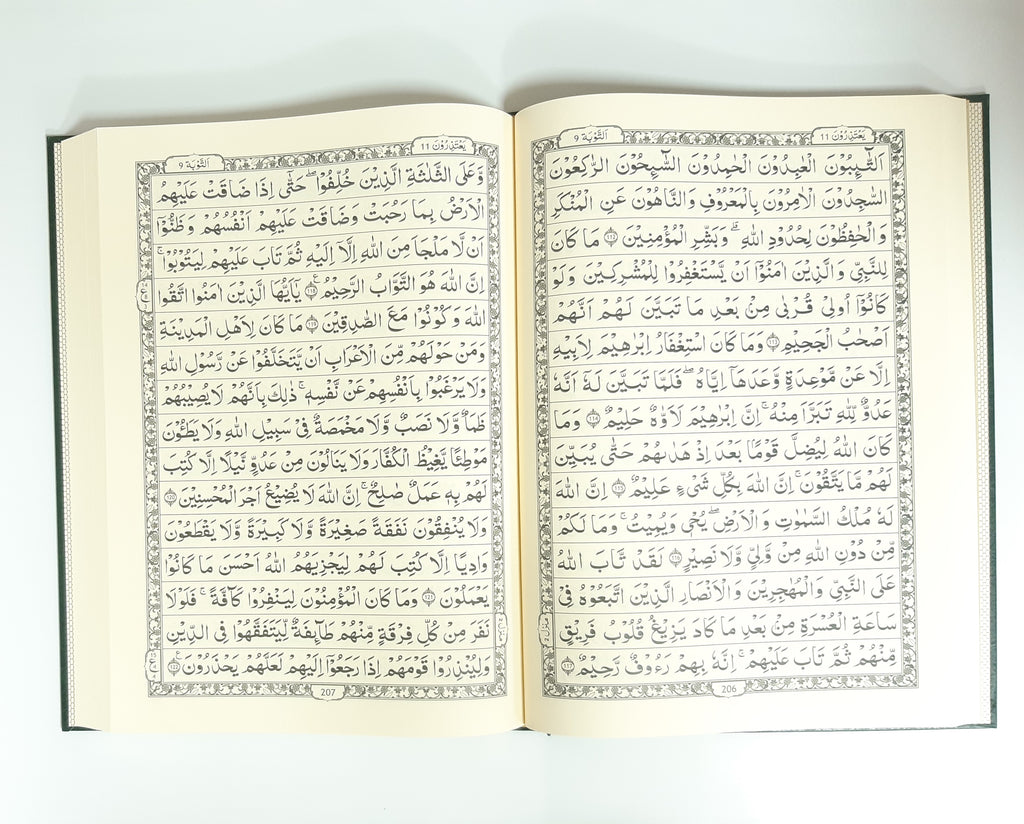 يَعْتَذِرُوْنَ 11
اَلتَّوْبَة 9
اَلتَّآئِبُوْنَ الْعٰبِدُوْنَ الْحٰمِدُوْنَ السَّآئِحُوْنَ الرّٰكِعُوْنَ
السّٰجِدُوْنَ الْاٰمِرُوْنَ بِالْمَعْرُوْفِ وَالنَّاهُوْنَ عَنِ الْمُنْكَرِ
وَالْحٰفِظُوْنَ لِحُدُوْدِ اللّٰهِ ؕ وَبَشِّرِ الْمُؤْمِنِيْنَ ﴿112﴾ مَا كَانَ
لِلنَّبِيِّ وَالَّذِيْنَ اٰمَنُوْۤا اَنْ يَّسْتَغْفِرُوْا لِلْمُشْرِكِيْنَ وَلَوْ
كَانُوْۤا اُولِيْ قُرْبٰى مِنْۢ بَعْدِ مَا تَبَيَّنَ لَهُمْ اَنَّهُمْ
اَصْحٰبُ الْجَحِيْمِ ﴿113﴾ وَمَا كَانَ اسْتِغْفَارُ اِبْرٰهِيْمَ لِاَبِيْهِ
اِلَّا عَنْ مَّوْعِدَةٍ وَّعَدَهَاۤ اِيَّاهُ ۚ فَلَمَّا تَبَيَّنَ لَهٗۤ اَنَّهٗ
عَدُوٌّ لِّلّٰهِ تَبَرَّاَ مِنْهُ ؕ اِنَّ اِبْرٰهِيْمَ لَاَوَّاهٌ حَلِيْمٌ ﴿114﴾ وَمَا
كَانَ اللّٰهُ لِيُضِلَّ قَوْمًاۢ بَعْدَ اِذْ هَدٰىهُمْ حَتّٰى يُبَيِّنَ
لَهُمْ مَّا يَتَّقُوْنَ ؕ اِنَّ اللّٰهَ بِكُلِّ شَيْءٍ عَلِيْمٌ ﴿115﴾ اِنَّ اللّٰهَ
لَهٗ مُلْكُ السَّمٰوٰتِ وَالْاَرْضِ ؕ يُحْيٖ وَيُمِيْتُ ؕ وَمَا لَكُمْ
مِّنْ دُوْنِ اللّٰهِ مِنْ وَّلِيٍّ وَّلَا نَصِيْرٍ ﴿116﴾ لَقَدْ تَّابَ اللّٰهُ
عَلَى النَّبِيِّ وَالْمُهٰجِرِيْنَ وَالْاَنْصَارِ الَّذِيْنَ اتَّبَعُوْهُ فِيْ
سَاعَةِ الْعُسْرَةِ مِنْۢ بَعْدِ مَا كَادَ يَزِيْغُ قُلُوْبُ فَرِيْقٍ
مِّنْهُمْ ثُمَّ تَابَ عَلَيْهِمْ ؕ اِنَّهٗ بِهِمْ رَءُوْفٌ رَّحِيْمٌ ﴿117﴾
206
يَعْتَذِرُوْنَ 11
اَلتَّوْبَة 9
وَّعَلَى الثَّلٰثَةِ الَّذِيْنَ خُلِّفُوْا ؕ حَتّٰۤى اِذَا ضَاقَتْ عَلَيْهِمُ
الْاَرْضُ بِمَا رَحُبَتْ وَضَاقَتْ عَلَيْهِمْ اَنْفُسُهُمْ وَظَنُّوْۤا
اَنْ لَّا مَلْجَاَ مِنَ اللّٰهِ اِلَّاۤ اِلَيْهِ ثُمَّ تَابَ عَلَيْهِمْ لِيَتُوْبُوْا ؕ
اِنَّ اللّٰهَ هُوَ التَّوَّابُ الرَّحِيْمُ ﴿118﴾ يٰۤاَيُّهَا الَّذِيْنَ اٰمَنُوا اتَّقُوا
اللّٰهَ وَكُوْنُوْا مَعَ الصّٰدِقِيْنَ ﴿119﴾ مَا كَانَ لِاَهْلِ الْمَدِيْنَةِ
وَمَنْ حَوْلَهُمْ مِّنَ الْاَعْرَابِ اَنْ يَّتَخَلَّفُوْا عَنْ رَّسُوْلِ اللّٰهِ
وَلَا يَرْغَبُوْا بِاَنْفُسِهِمْ عَنْ نَّفْسِهٖ ؕ ذٰلِكَ بِاَنَّهُمْ لَا يُصِيْبُهُمْ
ظَمَاٌ وَّلَا نَصَبٌ وَّلَا مَخْمَصَةٌ فِيْ سَبِيْلِ اللّٰهِ وَلَا يَطَـُٔوْنَ
مَوْطِئًا يَّغِيْظُ الْكُفَّارَ وَلَا يَنَالُوْنَ مِنْ عَدُوٍّ نَّيْلًا اِلَّا كُتِبَ
لَهُمْ بِهٖ عَمَلٌ صَالِحٌ ؕ اِنَّ اللّٰهَ لَا يُضِيْعُ اَجْرَ الْمُحْسِنِيْنَ ﴿120﴾
وَلَا يُنْفِقُوْنَ نَفَقَةً صَغِيْرَةً وَّلَا كَبِيْرَةً وَّلَا يَقْطَعُوْنَ
وَادِيًا اِلَّا كُتِبَ لَهُمْ لِيَجْزِيَهُمُ اللّٰهُ اَحْسَنَ مَا كَانُوْا
يَعْمَلُوْنَ ﴿121﴾ وَمَا كَانَ الْمُؤْمِنُوْنَ لِيَنْفِرُوْا كَآفَّةً ؕ فَلَوْلَا
نَفَرَ مِنْ كُلِّ فِرْقَةٍ مِّنْهُمْ طَآئِفَةٌ لِّيَتَفَقَّهُوْا فِي الدِّيْنِ
وَلِيُنْذِرُوْا قَوْمَهُمْ اِذَا رَجَعُوْۤا اِلَيْهِمْ لَعَلَّهُمْ يَحْذَرُوْنَ ﴿122﴾
207